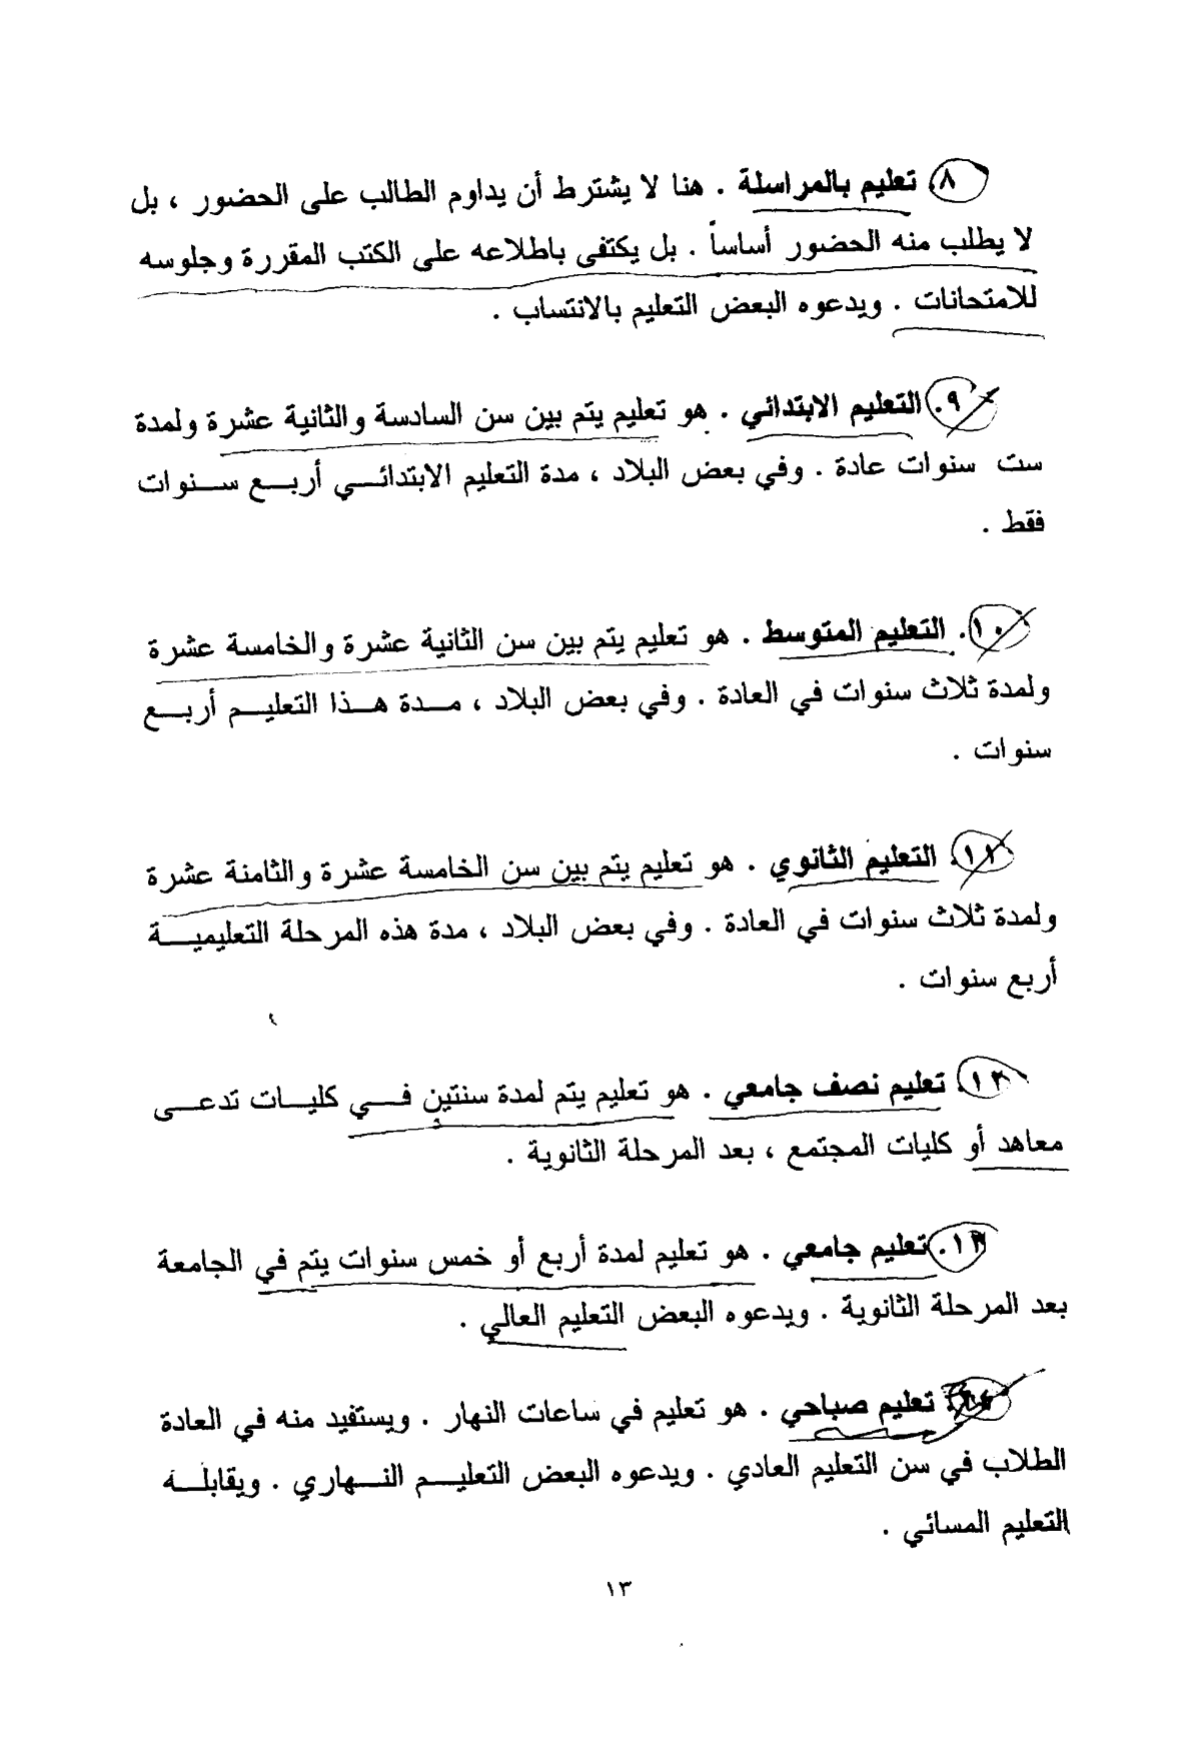 ٨. تعليم بالمراسلة . هنا لا يشترط أن يداوم الطالب على الحضور ، بل
لا يطلب منه الحضور أساساً . بل يكتفى باطلاعه على الكتب المقررة وجلوسه
للامتحانات . ويدعوه البعض التعليم بالانتساب .
٩. التعليم الابتدائي . هو تعليم يتم بين سن السادسة والثانية عشرة ولمدة
ست سنوات عادة . وفي بعض البلاد ، مدة التعليم الابتدائي أربع سنوات
فقط .
١٠. التعليم المتوسط . هو تعليم يتم بين سن الثانية عشرة والخامسة عشرة
ولمدة ثلاث سنوات في العادة . وفي بعض البلاد ، مدة هذا التعليم أربع
سنوات .
١١. التعليم الثانوي . هو تعليم يتم بين سن الخامسة عشرة والثامنة عشرة
ولمدة ثلاث سنوات في العادة . وفي بعض البلاد ، مدة هذه المرحلة التعليمية
أربع سنوات .
١٢. تعليم نصف جامعي . هو تعليم يتم لمدة سنتين في كليات تدعى
معاهد أو كليات المجتمع ، بعد المرحلة الثانوية .
١٣. تعليم جامعي . هو تعليم لمدة أربع أو خمس سنوات يتم في الجامعة
بعد المرحلة الثانوية . ويدعوه البعض التعليم العالي .
١٤. تعليم صباحي . هو تعليم في ساعات النهار . ويستفيد منه في العادة
الطلاب في سن التعليم العادي . ويدعوه البعض التعليم النهاري . ويقابله
التعليم المسائي .
١٣